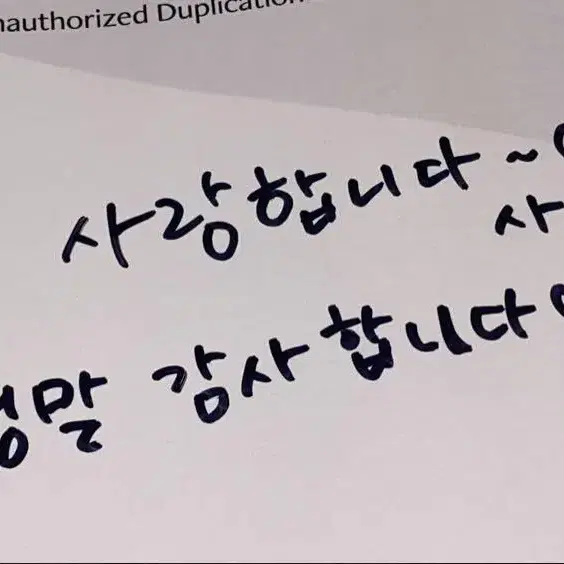 nauthorized Duplication
사랑합니다~
사
정말 감사합니다